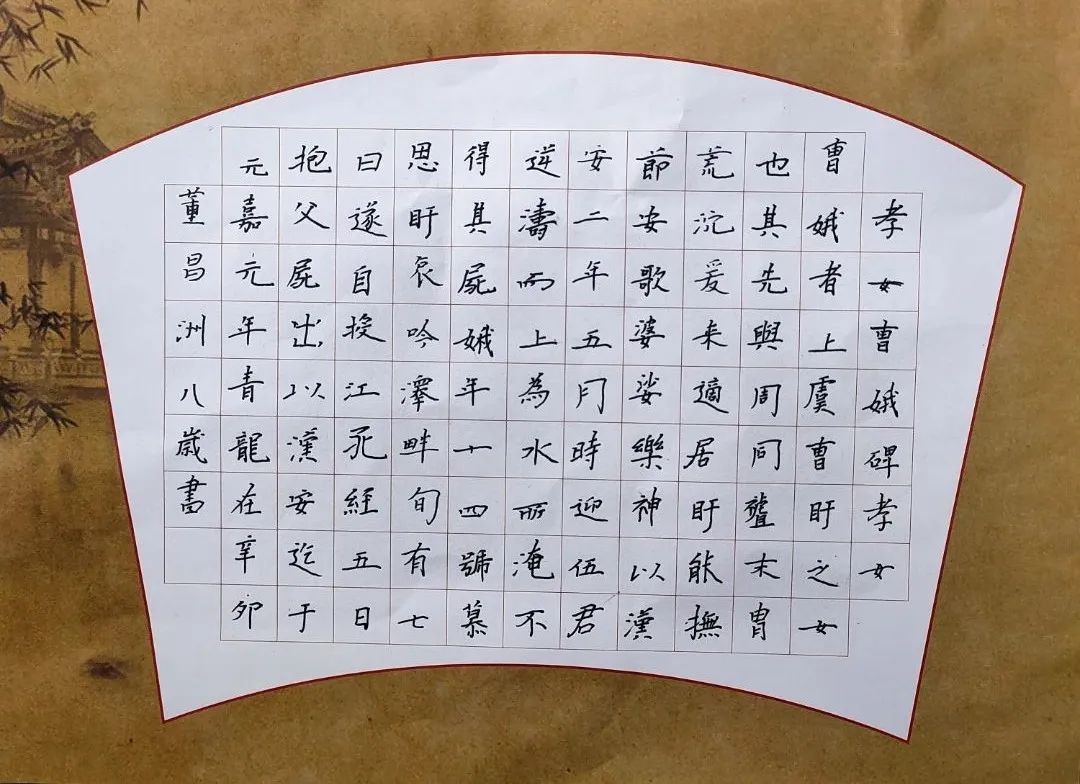 孝女曹娥碑孝女
曹娥者上虞曹盱之女
也其先與周同聾末冑
荒沉爰来適居盱能撫
節安歌婆娑樂神以漢
安二年五月時迎伍君
逆濤而上為水所淹不
得其屍娥年十四號慕
思盱哀吟澤畔旬有七
日遂自投江死經五日
抱父屍出以漢安迄于
元嘉元年青龍在辛卯
董昌洲八歲書